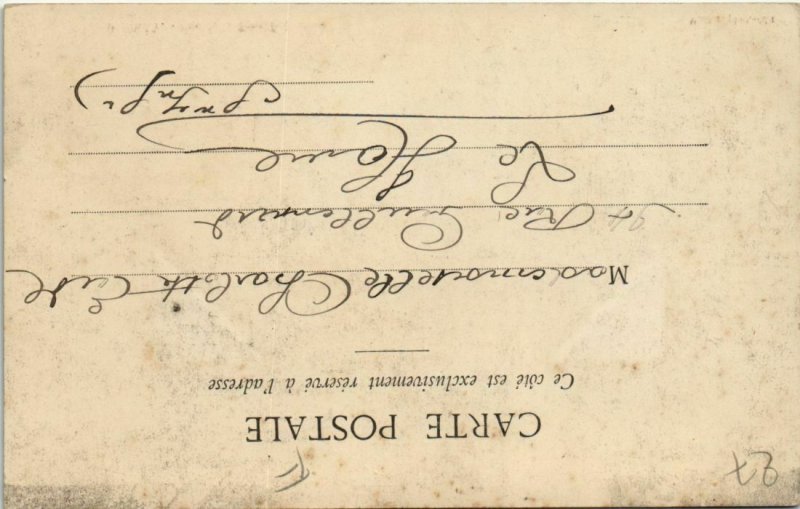 CARTE POSTALE
Ce côté est exclusivement réservé à l'adresse
Mademoiselle Charlotte
Rue Guillemard
Le Havre